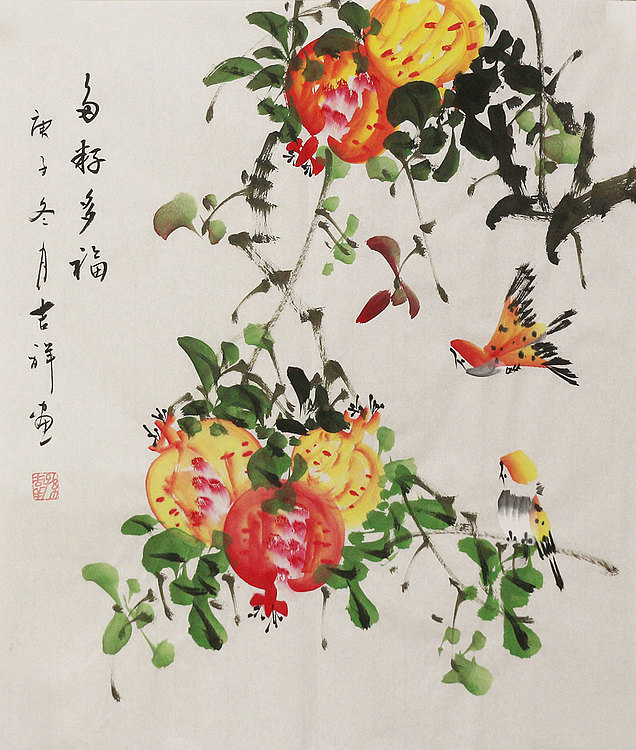 多籽多福
庚子冬月吉祥画